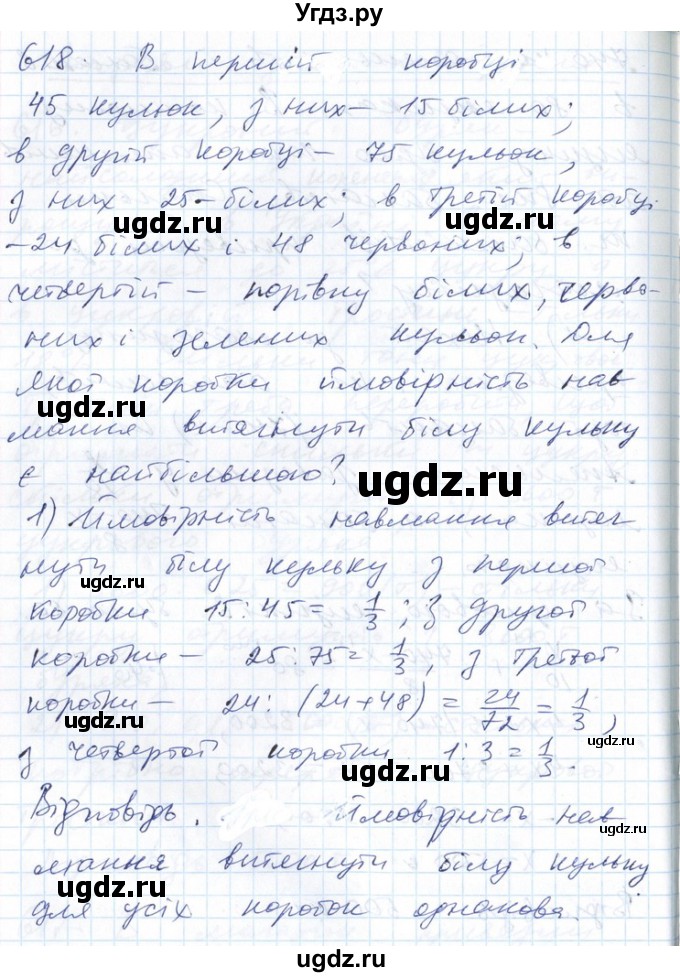 Угдз.ру
618. В першій коробці
45 кульок, з них — 15 білих;
в другій коробці — 75 кульок,
ugdz.ru
з них 25 - білих; в третій коробці
ugdz.ru
- 24 білих і 48 червоних; в
ugdz.ru
четвертій — порівну білих, черво-
них і зелених кульок. Для
якої коробки ймовірність нав
ugdz.ru
мання витягнути білу кульку
є найбільшою?
ugdz.ru
1) Ймовірність навмання витяг
нути білу кульку з першої
ugdz.ru
коробки 15 : 45 = 1/3; з другої
ugdz.ru
коробки — 25 : 75 = 1/3, з третьої
коробки — 24 : (24 + 48) = 24/72 = 1/3,
ugdz.ru
з четвертої коробки 1 : 3 = 1/3.
ugdz.ru
Відповідь. Ймовірність нав
ugdz.ru
мання витягнути білу кульку
ugdz.ru
для усіх коробок однакова.
ugdz.ru